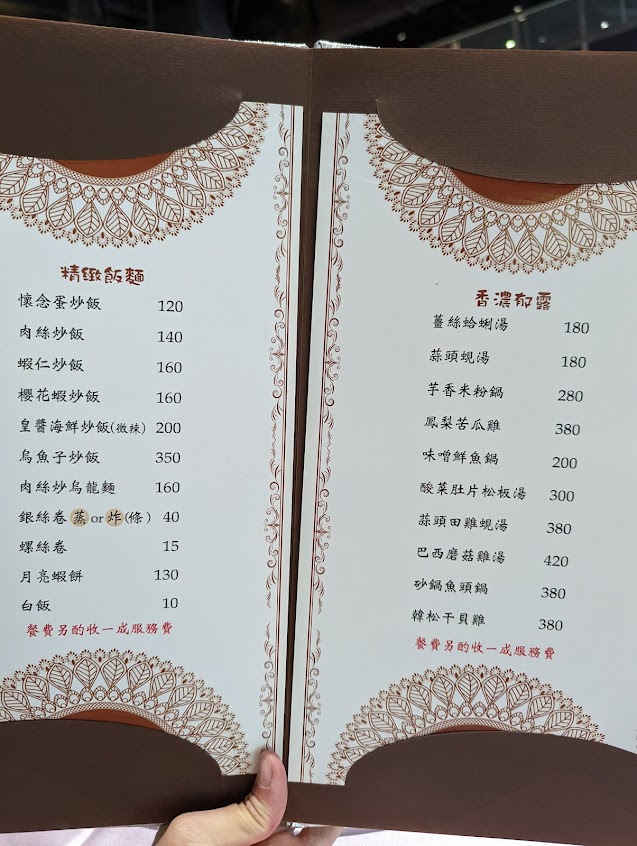 精緻飯麵
懷念蛋炒飯 120
肉絲炒飯 140
蝦仁炒飯 160
櫻花蝦炒飯 160
皇醬海鮮炒飯(微辣) 200
烏魚子炒飯 350
肉絲炒烏龍麵 160
銀絲卷 蒸 or 炸 (條) 40
螺絲卷 15
月亮蝦餅 130
白飯 10
餐費另酌收一成服務費
香濃郁露
薑絲蛤蜊湯 180
蒜頭蜆湯 180
芋香米粉鍋 280
鳳梨苦瓜雞 380
味噌鮮魚鍋 200
酸菜肚片松板湯 300
蒜頭田雞蜆湯 380
巴西磨菇雞湯 420
砂鍋魚頭鍋 380
韓松干貝雞 380
餐費另酌收一成服務費